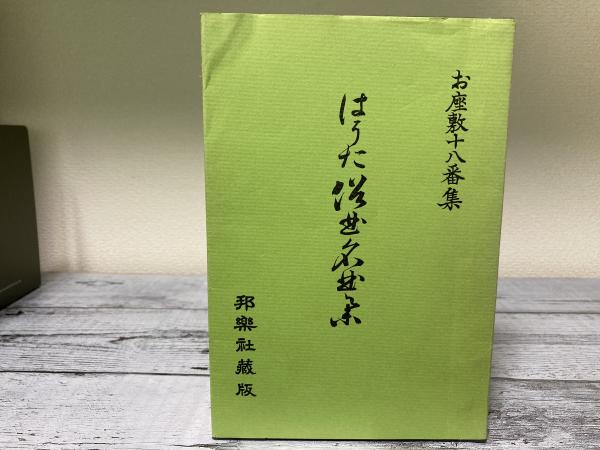 お座敷十八番集
はうた俗曲名曲集
邦樂社藏版